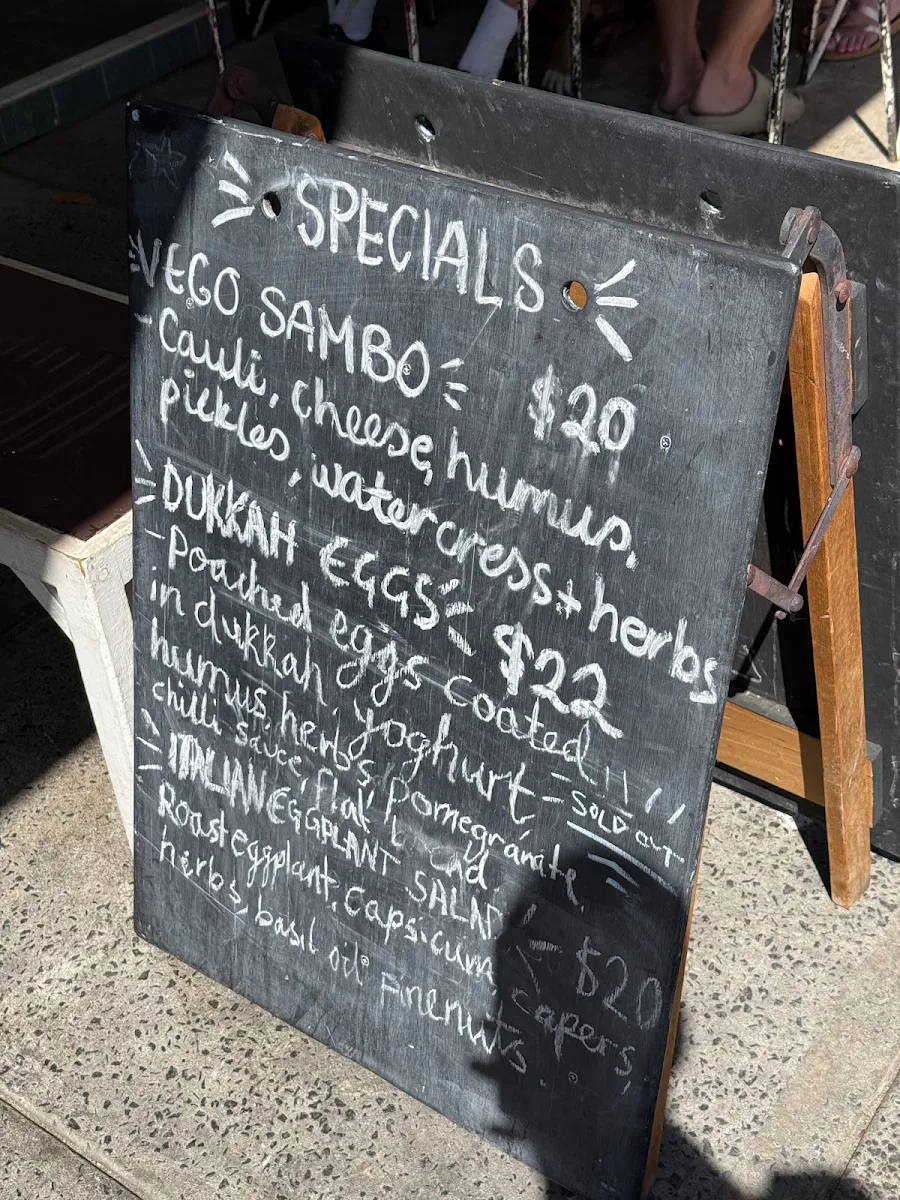 SPECIALS
VEGO SAMBO $20
- Cauli, cheese, humus,
pickles, watercress + herbs
DUKKAH EGGS $22
- Poached eggs coated
in dukkah, yoghurt - SOLD OUT
humus, herbs, pomegranate,
chilli sauce, flat bread.
ITALIAN EGGPLANT SALAD $20
Roast eggplant, capsicum, capers,
herbs, basil oil pinenuts.